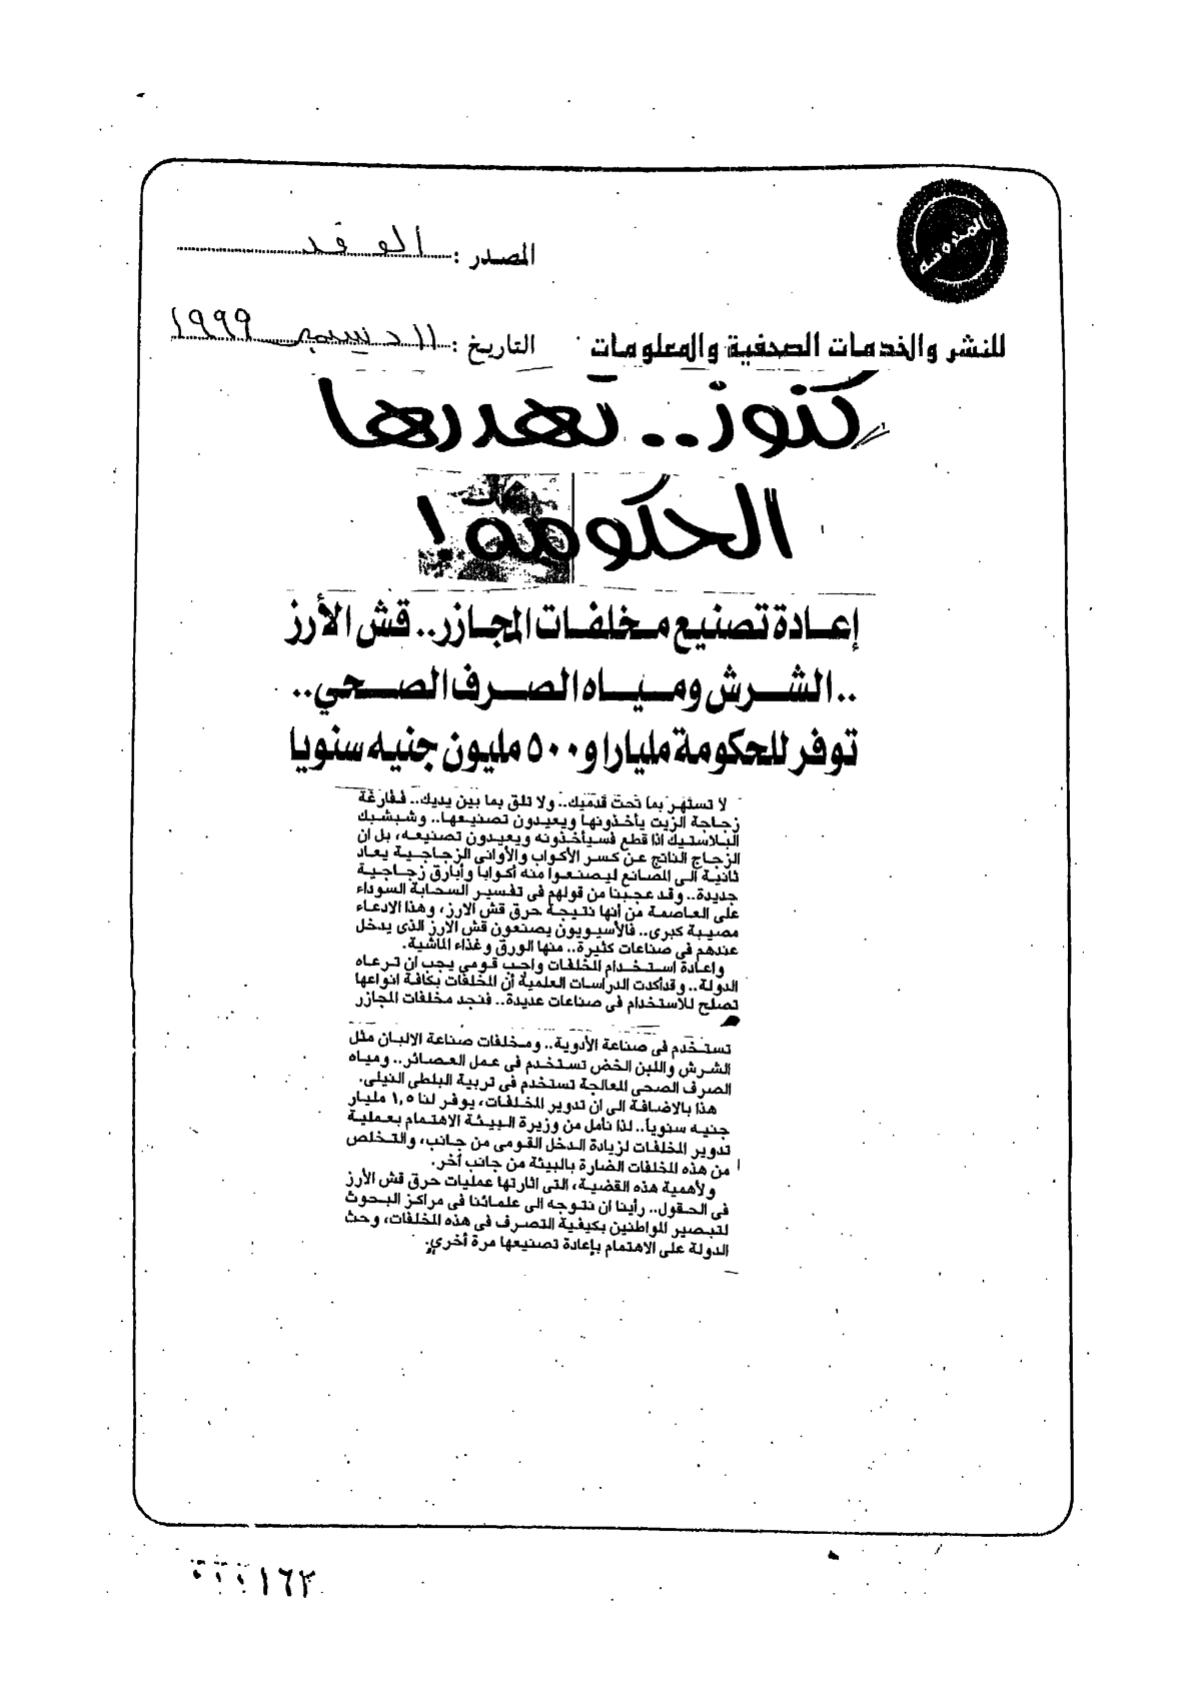 المصدر : الوفد
للنشر والخدمات الصحفية والمعلومات
التاريخ : ١١ ديسمبر ١٩٩٩
كنوز.. تهدرها
الحكومة!
إعادة تصنيع مخلفات المجازر.. قش الأرز
.. الشرش ومياه الصرف الصحي..
توفر للحكومة مليارا و ٥٠٠ مليون جنيه سنويا
لا تستهر بما تحت قدميك.. ولا تلق بما بين يديك.. ففارغة
زجاجة الزيت يأخذونها ويعيدون تصنيعها.. وشبشبك
البلاستيك اذا قطع فسيأخذونه ويعيدون تصنيعه، بل ان
الزجاج الناتج عن كسر الأكواب والأوانى الزجاجية يعاد
ثانية الى المصانع ليصنعوا منه أكوابا وأبارق زجاجية
جديدة.. وقد عجبنا من قولهم فى تفسير السحابة السوداء
على العاصمة من أنها نتيجة حرق قش الارز، وهذا الادعاء
مصيبة كبرى.. فالأسيويون يصنعون قش الارز الذى يدخل
عندهم فى صناعات كثيرة.. منها الورق وغذاء الماشية.
وإعادة استخدام المخلفات واجب قومى يجب ان ترعاه
الدولة.. وقد أكدت الدراسات العلمية أن المخلفات بكافة انواعها
تصلح للاستخدام فى صناعات عديدة.. فنجد مخلفات المجازر
تستخدم فى صناعة الأدوية.. ومخلفات صناعة الالبان مثل
الشرش واللبن الخض تستخدم فى عمل العصائر.. ومياه
الصرف الصحى المعالجة تستخدم فى تربية البلطى النيلى.
هذا بالاضافة الى ان تدوير المخلفات، يوفر لنا ١,٥ مليار
جنيه سنويا.. لذا نأمل من وزيرة البيئة الاهتمام بعملية
تدوير المخلفات لزيادة الدخل القومى من جانب، والتخلص
من هذه المخلفات الضارة بالبيئة من جانب أخر.
ولأهمية هذه القضية، التى اثارتها عمليات حرق قش الأرز
فى الحقول.. رأينا ان نتوجه الى علمائنا فى مراكز البحوث
لتبصير المواطنين بكيفية التصرف فى هذه المخلفات، وحث
الدولة على الاهتمام بإعادة تصنيعها مرة أخرى.
١٦٣